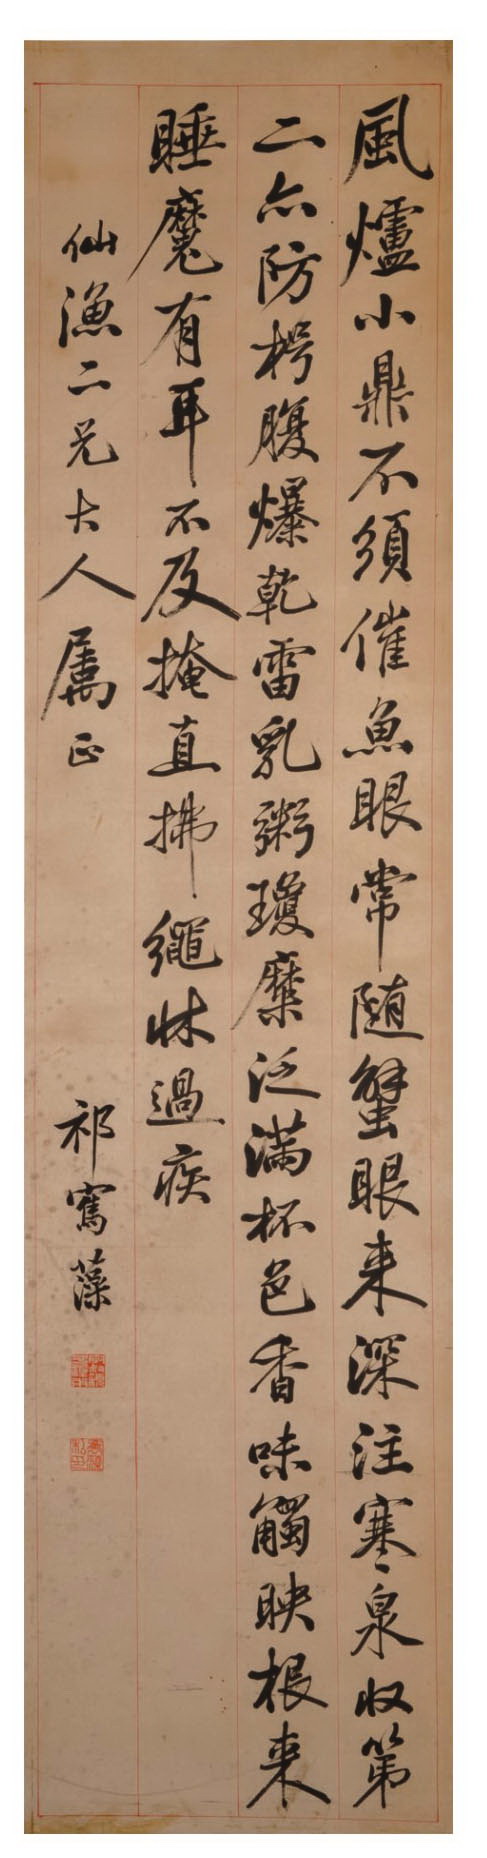 風爐小鼎不須催魚眼常随蟹眼来深注寒泉收第
二亦防枵腹爆乾雷乳粥瓊糜泛满杯色香味觸映根来
睡魔有耳不及掩直拂繩牀過疾
仙漁二兄大人属正
祁寯藻